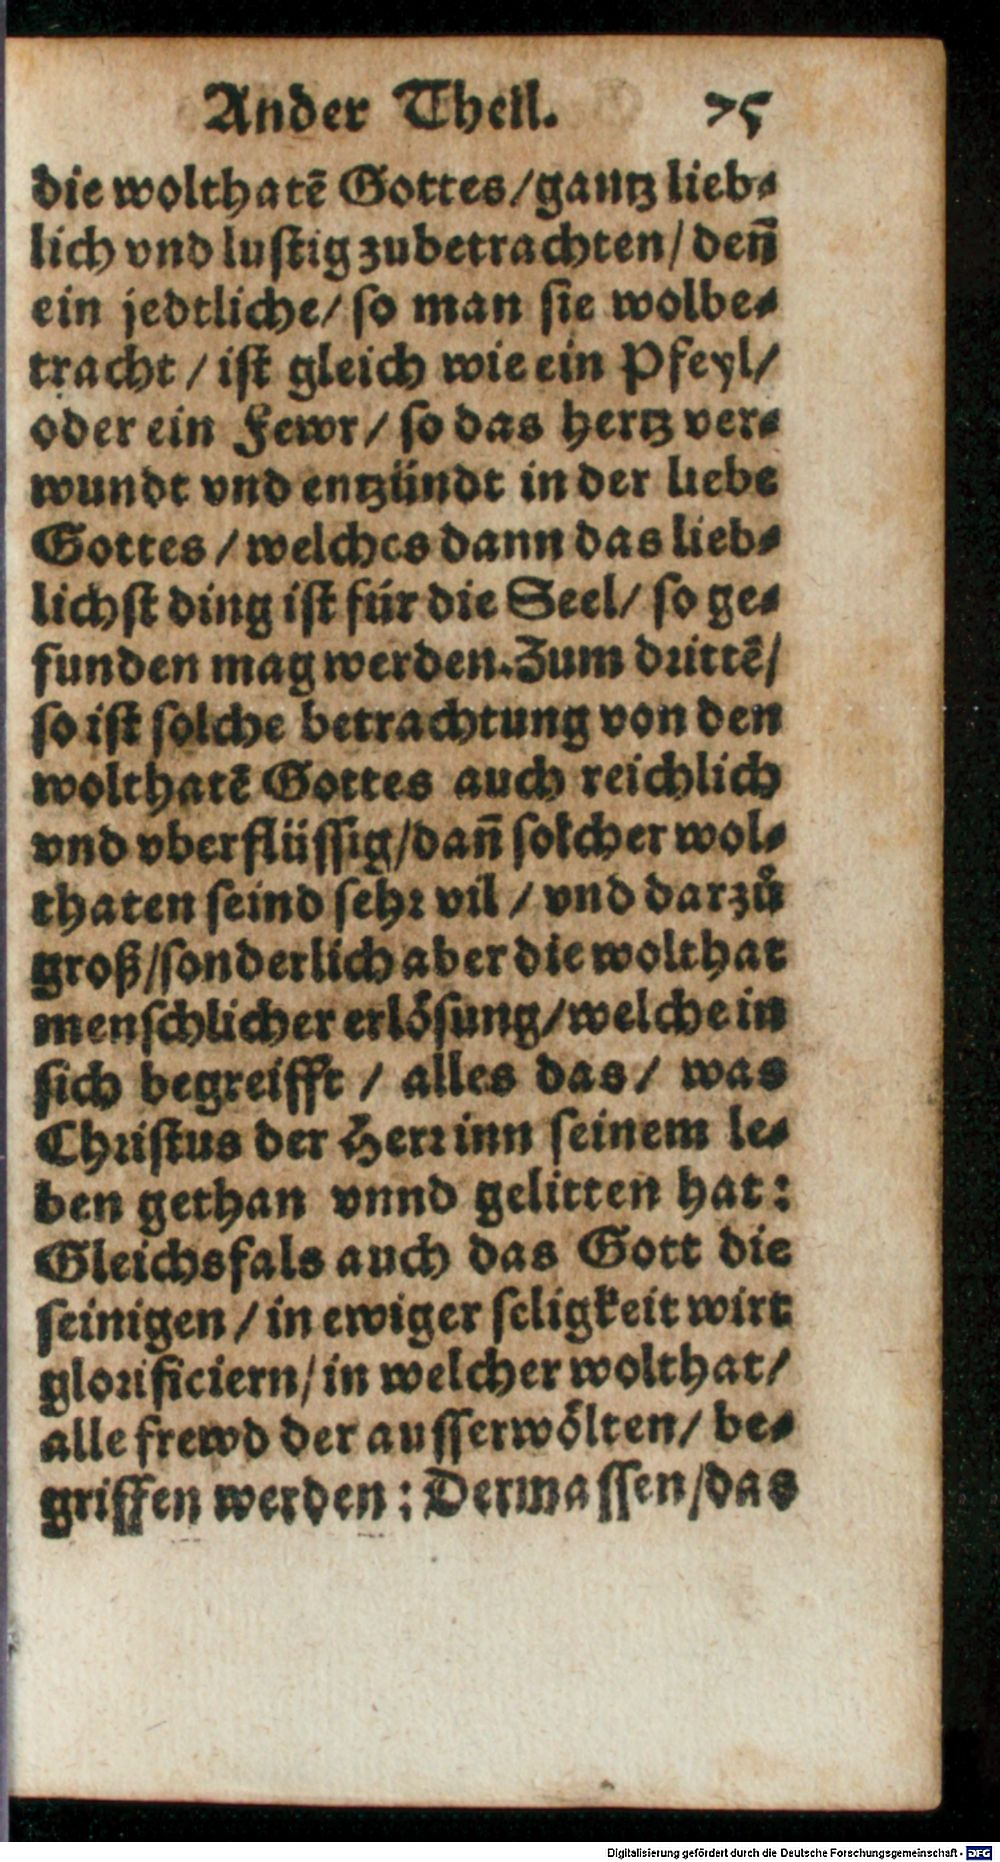 Ander Theil. 75
die wolthatē Gottes/gantz lieb-
lich vnd lustig zubetrachten/ deñ
ein jedtliche/ so man sie wolbe-
tracht / ist gleich wie ein Pfeyl/
oder ein Fewr/ so das hertz ver-
wundt vnd entzündt in der liebe
Gottes / welches dann das lieb-
lichst ding ist für die Seel/ so ge-
funden mag werden. Zum drittē/
so ist solche betrachtung von den
wolthatē Gottes auch reichlich
vnd vberflüssig/dañ solcher wol-
thaten seind sehr vil / vnd darzů
groß/sonderlich aber die wolthat
menschlicher erlösung/welche in
sich begreifft / alles das/ was
Christus der Herr inn seinem le-
ben gethan vnnd gelitten hat:
Gleichsfals auch das Gott die
seinigen / in ewiger seligkeit wirt
glorificiern/ in welcher wolthat/
alle frewd der ausserwölten/ be-
griffen werden : Dermassen/das
Digitalisierung gefördert durch die Deutsche Forschungsgemeinschaft - DFG